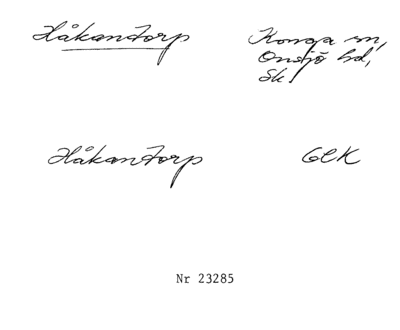 Håkantorp
Konga sn,
Onsjö hd,
Sk.
Håkantorp
GEK
Nr 23285